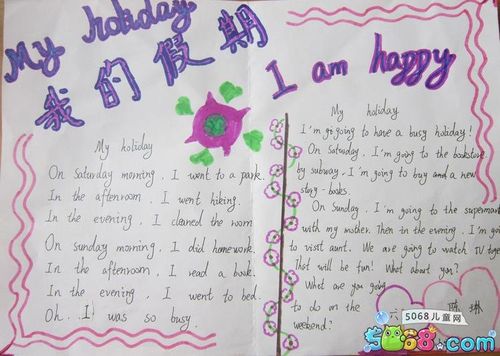 My holiday
我的假期
My holiday
On Saturday morning, I went to a park.
In the afternroon, I went hiking.
In the evening, I cleaned the room
On sunday morning, I did homework.
In the afternroon, I read a book.
In the evening, I went to bed.
Oh.. I was so busy.
I am happy
My holiday
I'm gi going to have a busy holiday!
On Satusday, I'm going to the bookstore
by subway, I'm going to buy and a new
story-books
On Sunday, I'm going to the supermark
with my mother. Then in the evening, I'm goi
to visit aunt. We are going to watch TV toge
That will be fun! What about you?
What are you going
to do on the
weekend?
六 陈琳
5068儿童网
5068.com